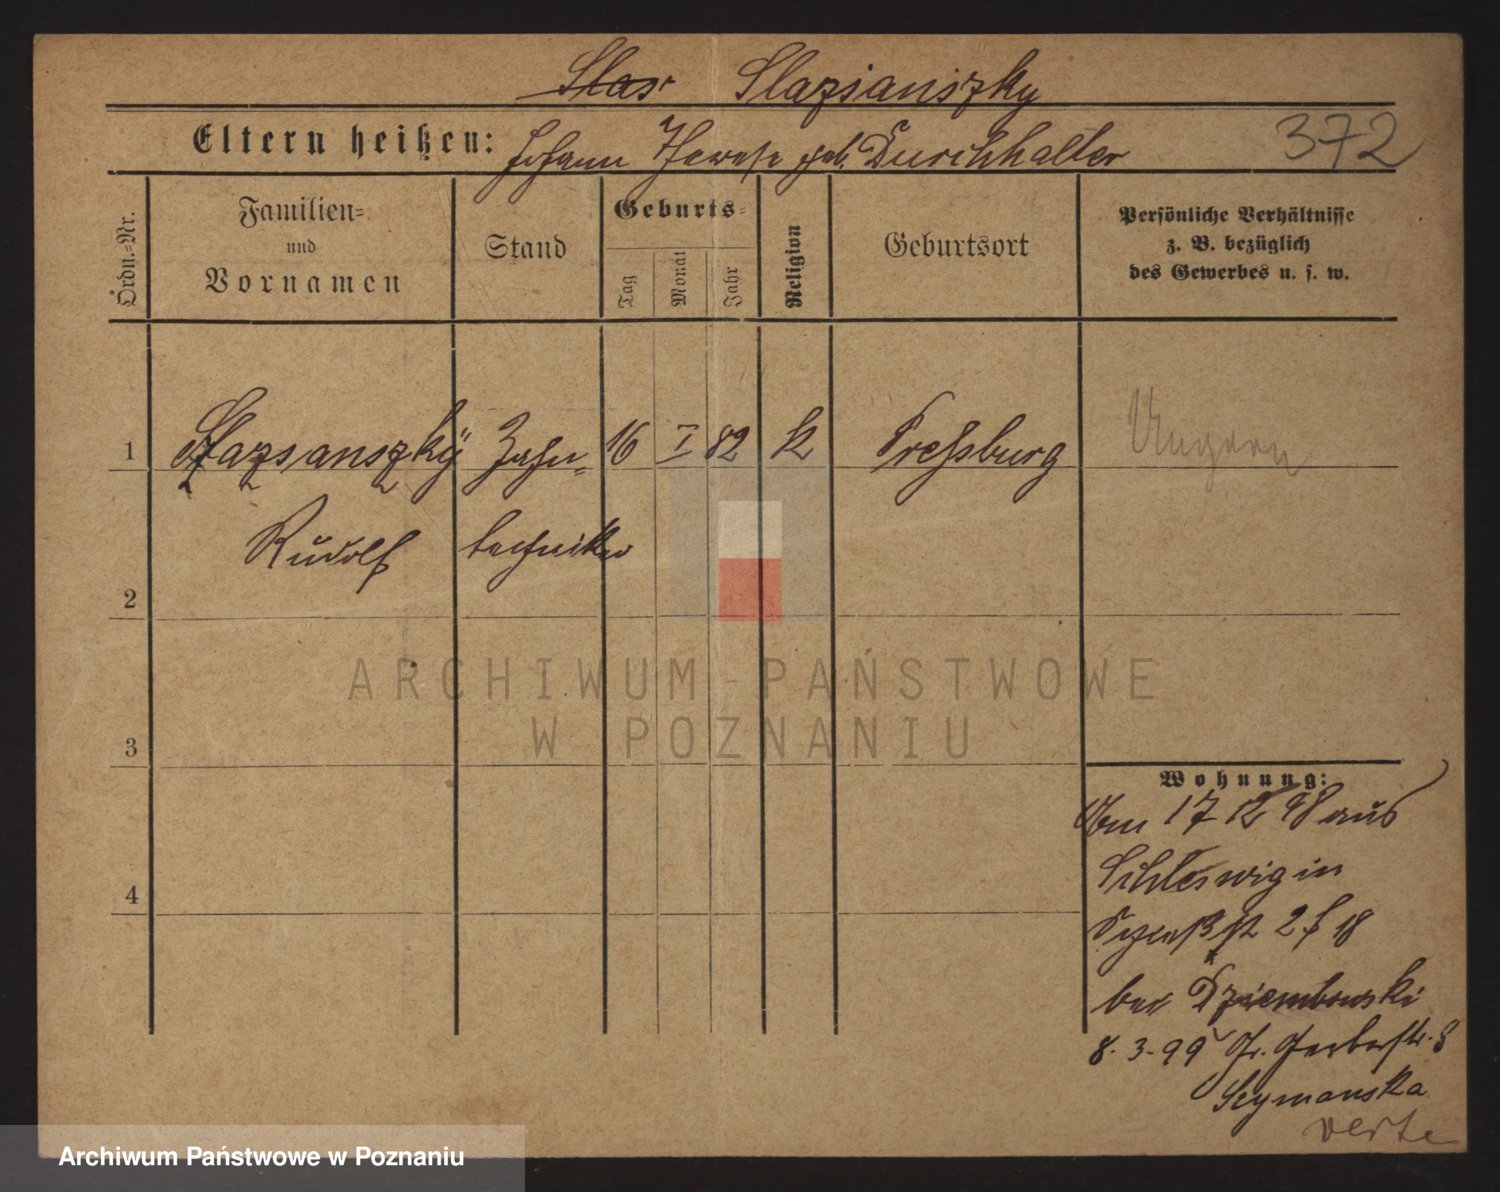 Slas Slazsianszky
Eltern heißen: Johann Therese geb. Durchhalter
372
Ordn.-Nr.
Familien-
und
Vornamen
Stand
Geburts-
Tag
Monat
Jahr
Religion
Geburtsort
Persönliche Verhältnisse
z. B. bezüglich
des Gewerbes u. s. w.
1 Slazsanszky Zahn- 16 I 82 K Preßburg Ungarn
Rudolf techniker
2
ARCHIWUM PAŃSTWOWE
W POZNANIU
3
Wohnung:
Am 17 12 98 aus
Schleswig in
18
4
bei Dziembowski
8.3.99 Gr. Gerberstr. 8
Szymanska
verte
Archiwum Państwowe w Poznaniu